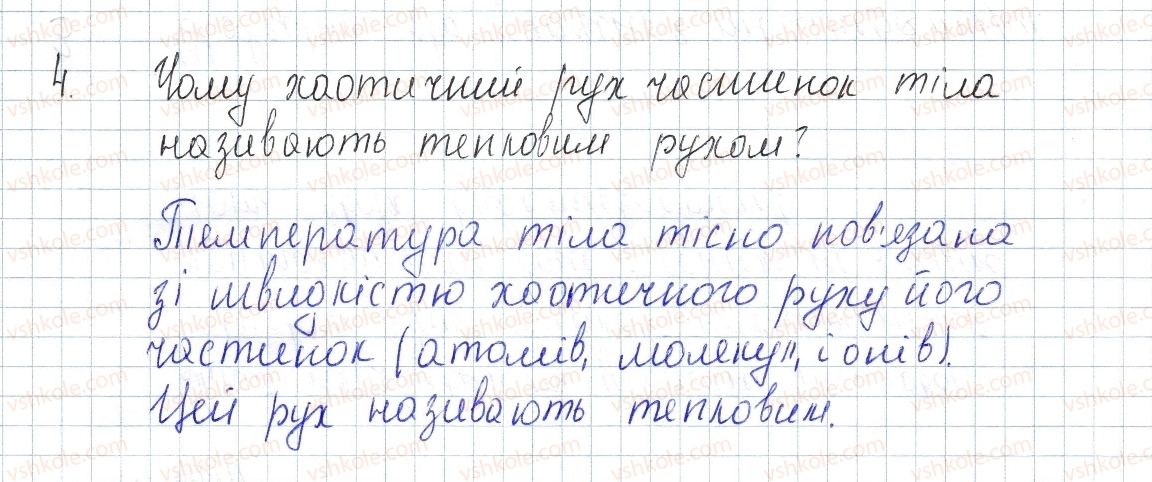 4. Чому хаотичний рух частинок тіла
називають тепловим рухом?
Температура тіла тісно пов'язана
зі швидкістю хаотичного руху його
частинок (атомів, молекул, іонів).
Цей рух називають тепловим.